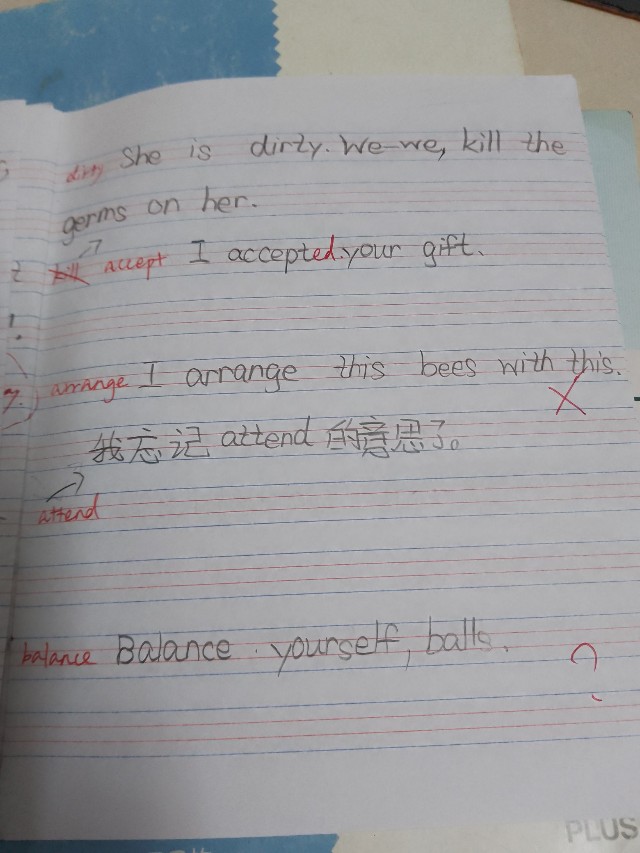 dirty She is dirty. We-we, kill the
germs on her.
kill accept I accepted.your gift.
7. arrange I arrange this bees with this.
我忘记 attend 的意思了。
attend
balance Balance yourself, balls.
?
PLUS